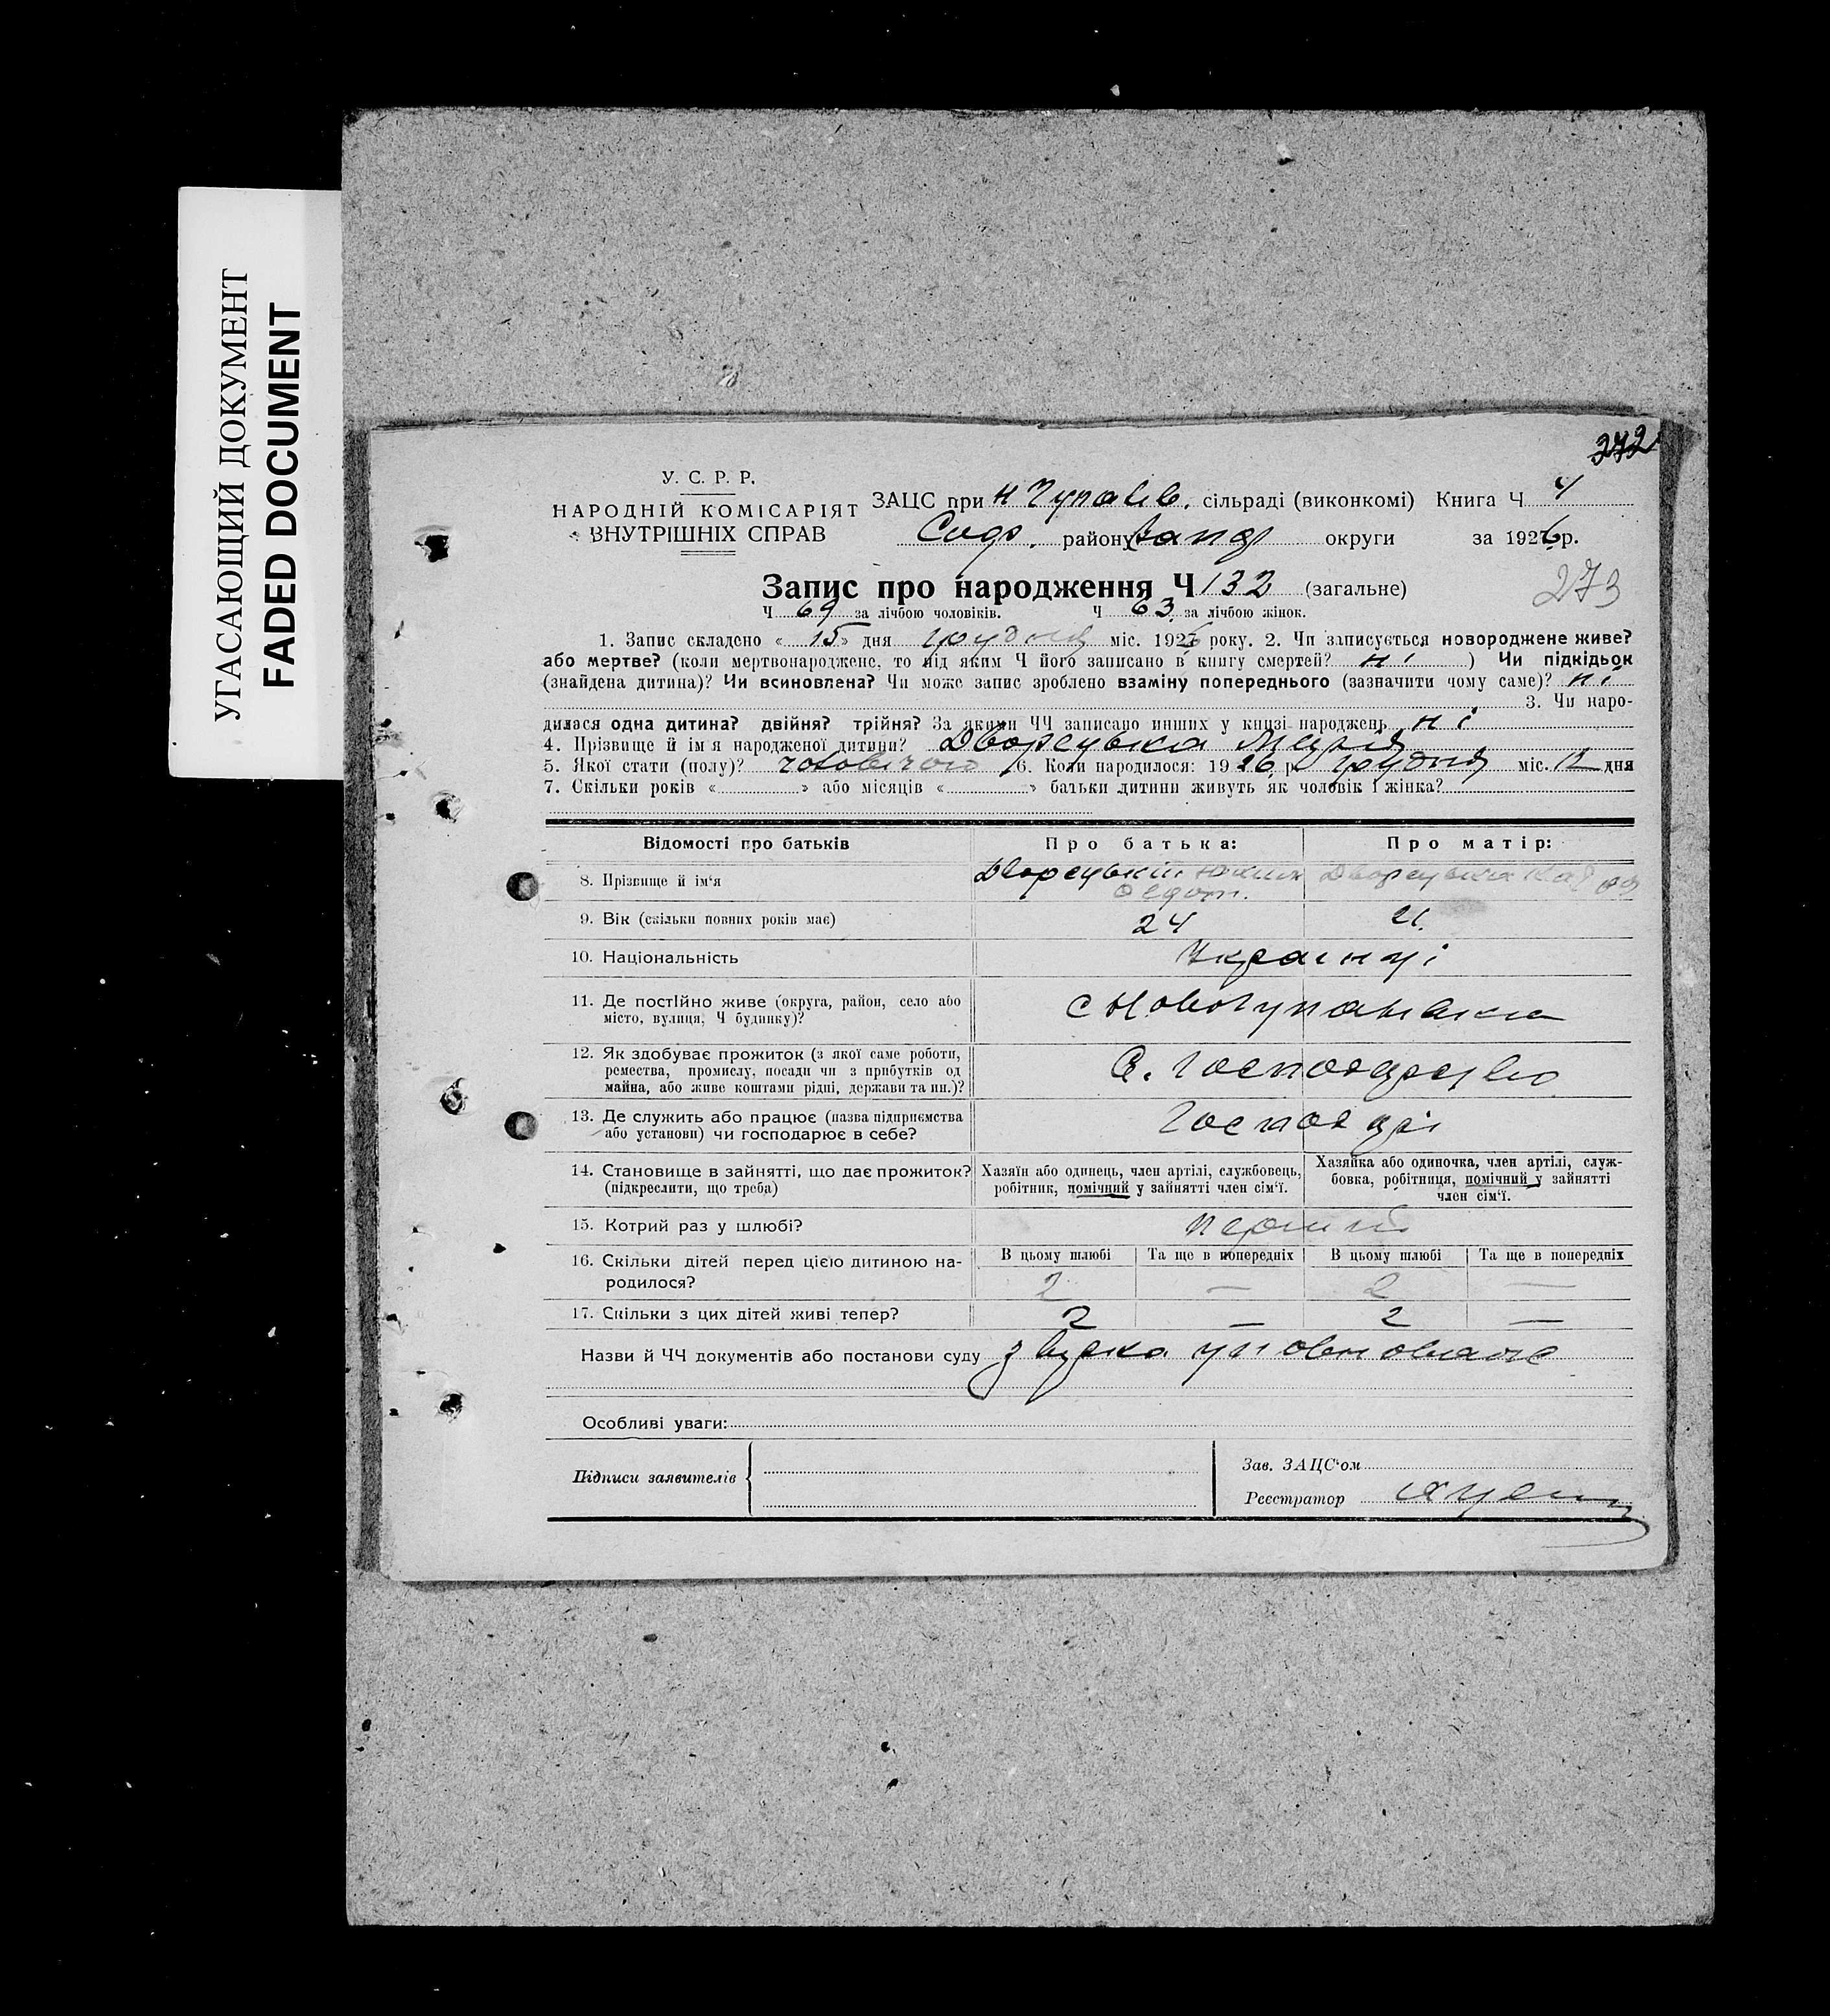 УГАСАЮЩИЙ ДОКУМЕНТ
FADED DOCUMENT
272
У. С. Р. Р.
НАРОДНІЙ КОМІСАРІЯТ
ВНУТРІШНІХ СПРАВ
ЗАЦС при сільраді (виконкомі) Книга Ч 4
району округи за 1926 р.
Запис про народження Ч 132 (загальне)
273
Ч 69 за лічбою чоловіків. Ч 63 за лічбою жінок.
1. Запис складено « 15 » дня грудня міс. 1926 року. 2. Чи записується новороджене живе?
або мертве? (коли мертвонароджене, то під яким Ч його записано в книгу смертей? ні ) Чи підкідьок
(знайдена дитина)? Чи всиновлена? Чи може запис зроблено взаміну попереднього (зазначити чому саме)? ні
3. Чи наро-
дилася одна дитина? двійня? трійня? За якими ЧЧ записано инших у книзі народжень ні
4. Прізвище й ім'я народженої дитини? Дворецька
5. Якої стати (полу)? 6. Коли народилося: 1926 р. грудня міс. 12 дня
7. Скільки років « » або місяців « » батьки дитини живуть як чоловік і жінка?
Відомості про батьків Про батька: Про матір:
8. Прізвище й ім'я Дворецький Дворецька
9. Вік (скільки повних років має) 24 21.
10. Національність Українці
11. Де постійно живе (округа, район, село або
місто, вулиця, Ч будинку)? с
12. Як здобуває прожиток (з якої саме роботи,
ремества, промислу, посади чи з прибутків од
майна, або живе коштами рідні, держави та ин.)? С. господарство
13. Де служить або працює (назва підприємства
або установи) чи господарює в себе?
14. Становище в зайнятті, що дає прожиток?
(підкреслити, що треба)
Хазяїн або одинець, член артілі, службовець,
робітник, помічний у зайнятті член сім'ї.
Хазяйка або одиночка, член артілі, служ-
бовка, робітниця, помічний у зайнятті
член сім'ї.
15. Котрий раз у шлюбі? перший
16. Скільки дітей перед цією дитиною на-
родилося?
В цьому шлюбі Та ще в попередніх В цьому шлюбі Та ще в попередніх
2 — 2 —
17. Скільки з цих дітей живі тепер? 2 — 2 —
Назви й ЧЧ документів або постанови суду
Особливі уваги:
Підписи заявителів
Зав. ЗАЦС'ом
Реєстратор